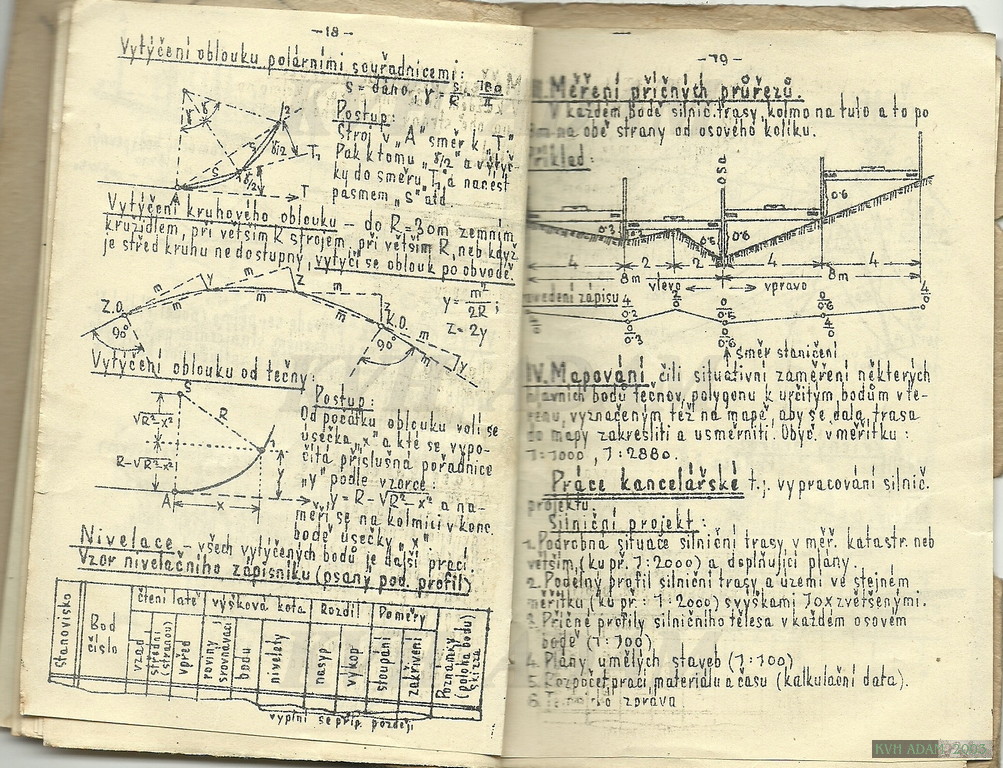 -18-
Vytýčení oblouku polárními souřadnicemi:
s = dáno, γ = s/R · 180/π
Postup:
Stroj v „A" směr k „T"
Pak k tomu „γ/2" a vytyč-
ky do směru „T₁" a nanést
pásmem „s" atd.
Vytýčení kruhového oblouku – do R=30m zemním
kružidlem, při větším R strojem, při větším R, neb když
je střed kruhu nedostupný, vytyčí se oblouk po obvodě.
Z.O.
y
m
m
z
m
m
K.O.
m
m
y
90°
90°
y = m²/2R ;
z = 2y
Vytýčení oblouku od tečny:
S
R
√R²-x²
R-√R²-x²
A
x
y
T
Postup:
Od počátku oblouku volí se
úsečka „x" a k té se vypo-
čítá příslušná pořadnice
„y" podle vzorce:
y = R-√R²-x² a na-
měří se na kolmici v konc.
bodě úsečky „x"
Nivelace – všech vytýčených bodů je další prací.
Vzor nivelačního zápisníku (psaný pod. profil)
Stanovisko
Bod číslo
čtení latě
výšková kota
Rozdíl
Poměry
Poznámky (poloha bodu) skizza
vzad
střední (stranou)
vpřed
roviny srovnávací
bodu
nivelety
násyp
výkop
stoupání
zakřivení
vyplní se příp. později
-19-
III. Měření příčných průřezů.
V každém bodě silnič. trasy, kolmo na tuto a to po
8m na obě strany od osového kolíku.
Příklad:
osa
0·3
0·5
0·6
0·6
4
2
2
4
4
8m
8m
vlevo
vpravo
směr staničení
IV. Mapování, čili situativní zaměření některých
hlavních bodů tečnov. polygonu k určitým bodům v te-
rénu, vyznačeným též na mapě, aby se dala trasa
do mapy zakresliti a usměrniti. Obyč. v měřítku:
1:1000, 1:2880.
Práce kancelářské t.j. vypracování silnič.
projektu.
Silniční projekt:
1. Podrobná situace silniční trasy v měř. katastr. neb
větším, (ku př. 1:2000) a doplňující plány.
2. Podélný profil silniční trasy a území ve stejném
měřítku (ku př. 1:2000) s výškami 10x zvětšenými.
3. Příčné profily silničního tělesa v každém osovém
bodě (1:100)
4. Plány umělých staveb (1:100)
5. Rozpočet prací materiálu a času (kalkulační data).
6. zpráva.
KVH ADAM 2005